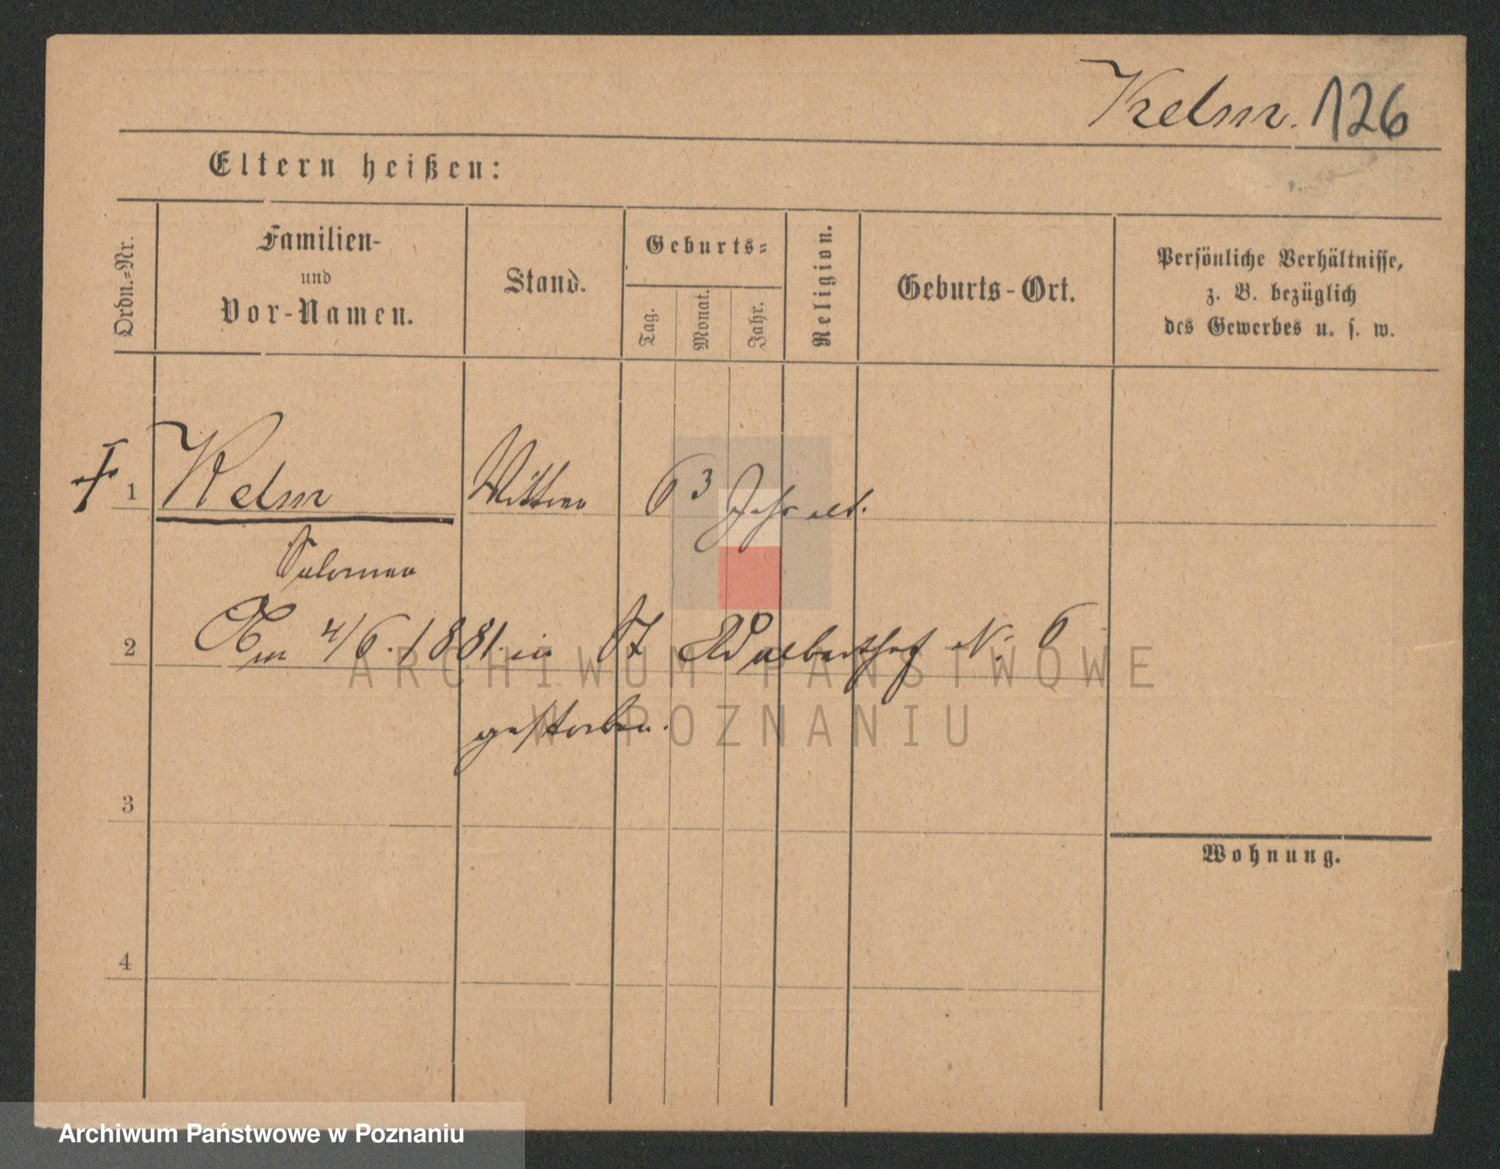 Kelm. 126
Eltern heißen:
Ordn.-Nr.
Familien-
und
Vor-Namen.
Stand.
Geburts-
Tag.
Monat.
Jahr.
Religion.
Geburts-Ort.
Persönliche Verhältnisse,
z. B. bezüglich
des Gewerbes u. s. w.
1 Kelm Wittwe 63 Jahr alt.
Salomea
2 Am 4/6. 1881. in St Adalberthof No 6
gestorben.
3
Wohnung.
4
ARCHIWUM PAŃSTWOWE
W POZNANIU
Archiwum Państwowe w Poznaniu